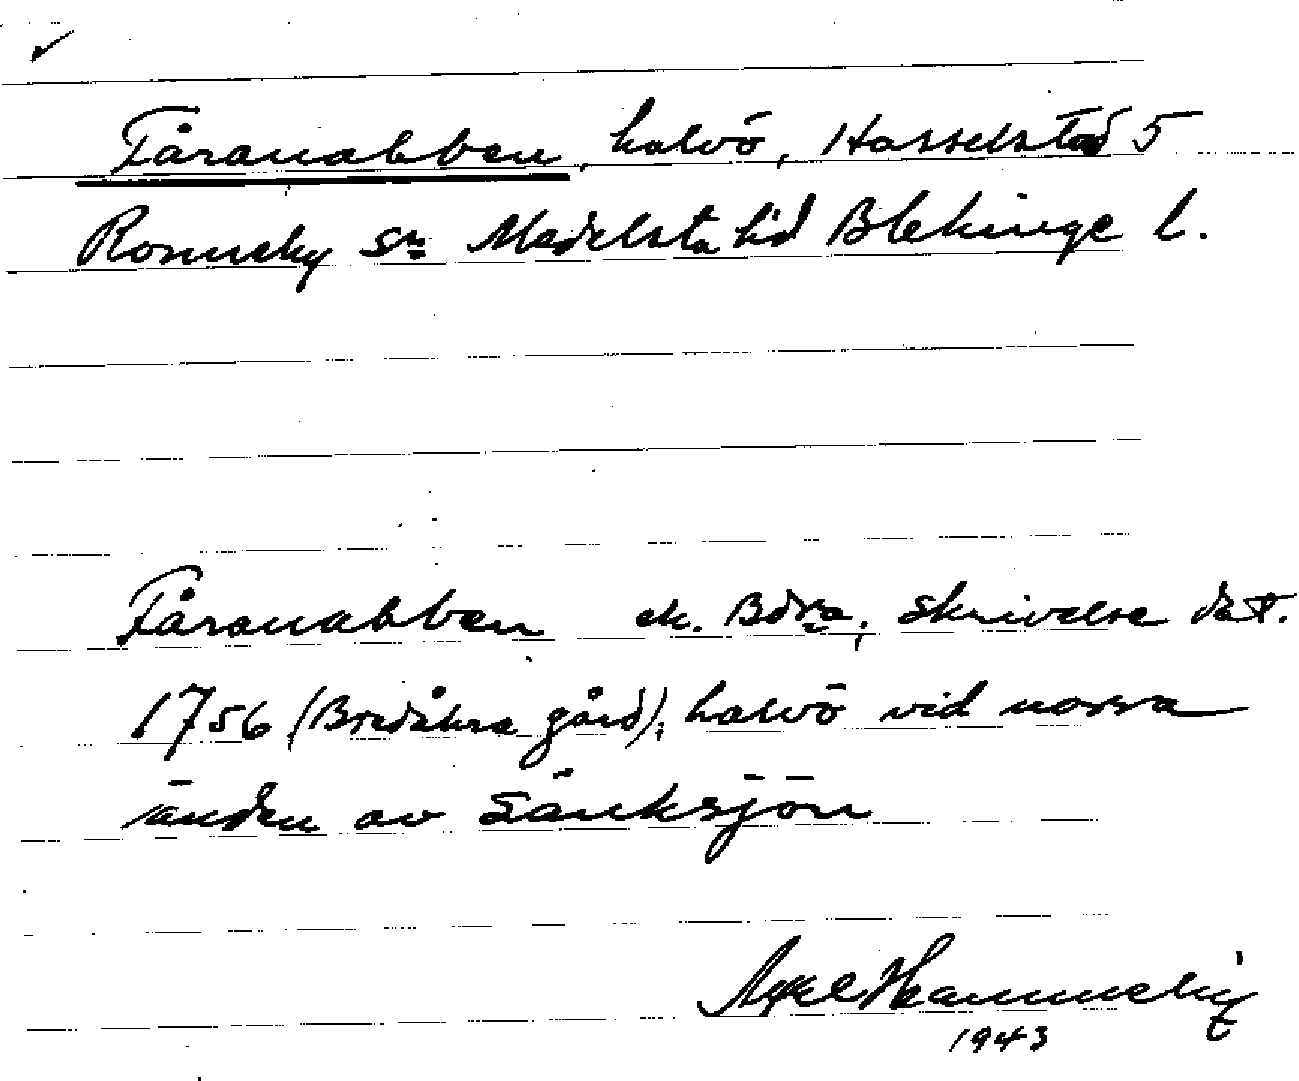 Fåranabben, halvö, Hasselstad 5
Ronneby sn Medelsta hd Blekinge l.
Fåranabben ek. Böra; skrivelse dat.
1756 (Bredåkra gård); halvö vid norra
änden av Sänksjön
Axel
1943